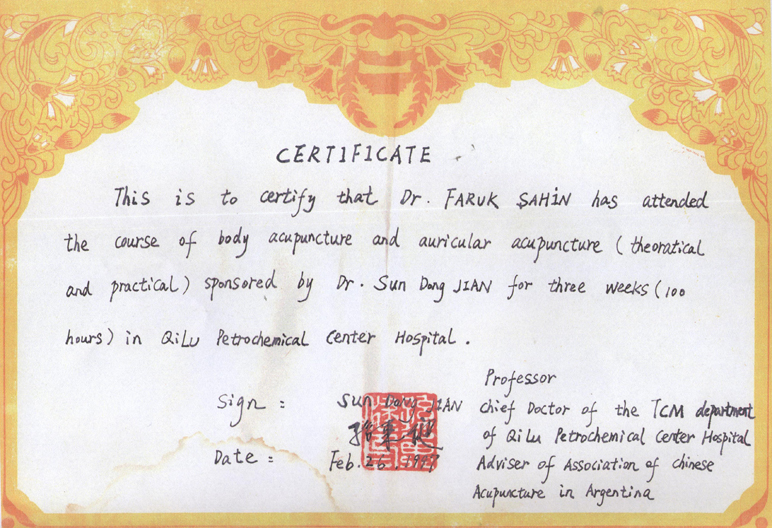 CERTIFICATE
This is to certify that Dr. FARUK ŞAHİN has attended
the course of body acupuncture and auricular acupuncture (theoratical
and practical) sponsored by Dr. Sun Dong JIAN for three weeks (100
hours) in QiLu Petrochemical Center Hospital.
Sign : Sun Dong JIAN
Date : Feb. 26. 1997
Professor
chief Doctor of the TCM department
of QiLu Petrochemical Center Hospital
Adviser of Association of chinese
Acupuncture in Argentina